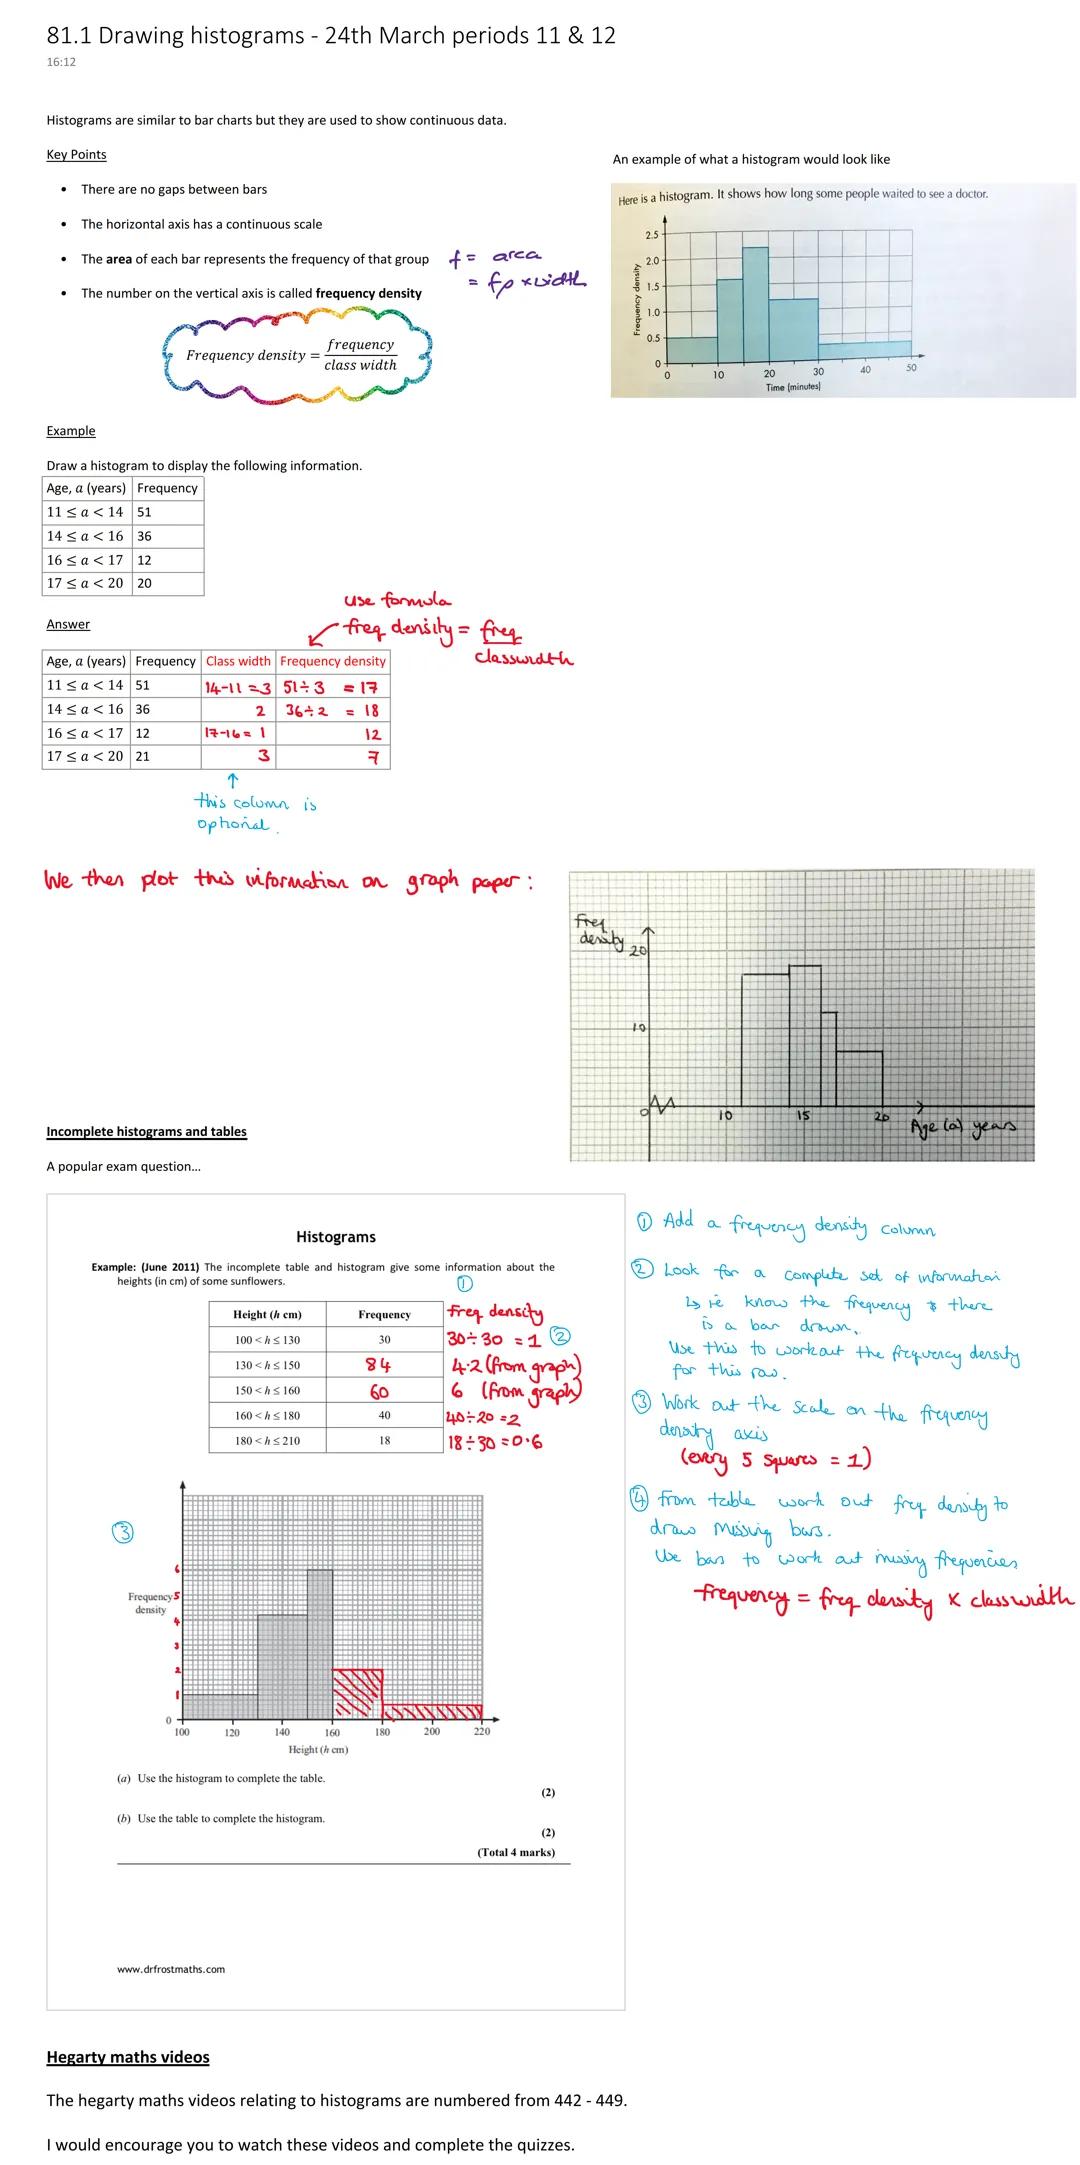 81.1 Drawing histograms - 24th March periods 11 & 12
16:12
Histograms are similar to bar charts but they are used to show continuous data.
Key Points
• There are no gaps between bars
• The horizontal axis has a continuous scale
• The area of each bar represents the frequency of that group
• The number on the vertical axis is called frequency density
f = area
= fD × width
Frequency density = frequency / class width
An example of what a histogram would look like
Here is a histogram. It shows how long some people waited to see a doctor.
Frequency density
2.5
2.0
1.5
1.0
0.5
0
0 10 20 30 40 50
Time (minutes)
Example
Draw a histogram to display the following information.
Age, a (years) Frequency
11 ≤ a < 14 51
14 ≤ a < 16 36
16 ≤ a < 17 12
17 ≤ a < 20 20
Answer
use formula
freq density = freq / classwidth
Age, a (years) Frequency Class width Frequency density
11 ≤ a < 14 51 14-11 = 3 51÷3 = 17
14 ≤ a < 16 36 2 36÷2 = 18
16 ≤ a < 17 12 17-16 = 1 12
17 ≤ a < 20 21 3 7
↑
this column is
optional.
We then plot this information on graph paper:
Freq
density
20
10
0 10 15 20
Age (a) years
Incomplete histograms and tables
A popular exam question...
Histograms
Example: (June 2011) The incomplete table and histogram give some information about the
heights (in cm) of some sunflowers.
①
Height (h cm) Frequency Freq density
100 < h ≤ 130 30 30÷30 = 1 ②
130 < h ≤ 150 84 4.2 (from graph)
150 < h ≤ 160 60 6 (from graph)
160 < h ≤ 180 40 40÷20 = 2
180 < h ≤ 210 18 18÷30 = 0.6
③
6
Frequency 5
density
4
3
2
1
0
100 120 140 160 180 200 220
Height (h cm)
(a) Use the histogram to complete the table.
(2)
(b) Use the table to complete the histogram.
(2)
(Total 4 marks)
www.drfrostmaths.com
① Add a frequency density column
② Look for a complete set of information
↳ ie know the frequency & there
is a bar drawn.
Use this to workout the frequency density
for this row.
③ Work out the scale on the frequency
density axis
(every 5 squares = 1)
④ From table work out freq density to
draw missing bars.
Use bars to work out missing frequencies
frequency = freq density × classwidth
Hegarty maths videos
The hegarty maths videos relating to histograms are numbered from 442 - 449.
I would encourage you to watch these videos and complete the quizzes.